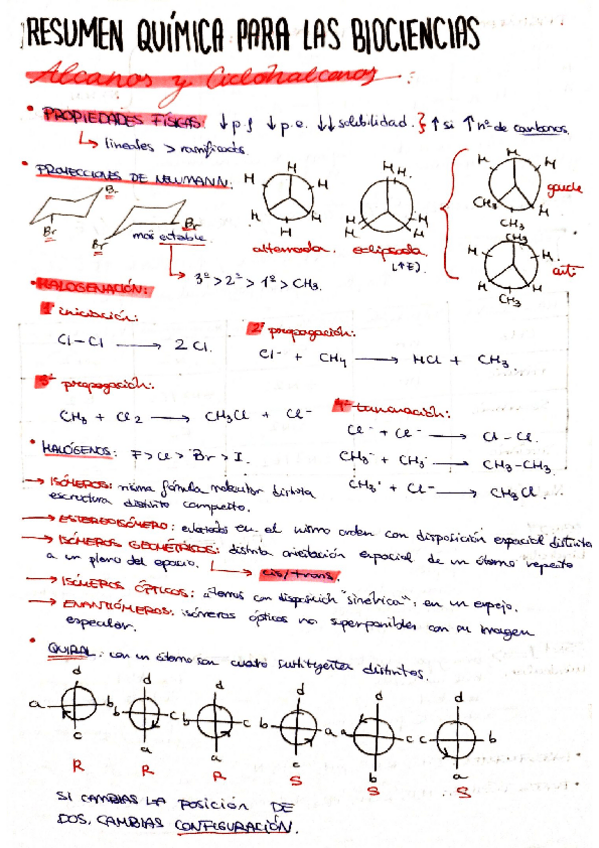 RESUMEN QUÍMICA PARA LAS BIOCIENCIAS
Alcanos y Cicloalcanos:
• PROPIEDADES FÍSICAS: ↓p.f ↓p.e. ↓↓solubilidad. } ↑ si ↑nº de carbonos.
↳ lineales > ramificados
• PROYECCIONES DE NEWMANN:
H H H H H H
H H. H H H H
H H H H CH3 CH3 gauche
CH3 H H H H CH3 anti
Br Br
Br Br
más estable
alternada. eclipsada (↑E).
↳ 3º > 2º > 1º > CH3.
• HALOGENACIÓN:
1º iniciación:
Cl-Cl → 2 Cl.
2º propagación:
Cl· + CH4 → HCl + CH3.
3º propagación:
CH3 + Cl2 → CH3Cl + Cl-
4º terminación:
Cl- + Cl- → Cl-Cl.
CH3· + CH3· → CH3-CH3.
CH3· + Cl- → CH3Cl.
• HALÓGENOS: F > Cl > Br > I.
→ ISÓMEROS: misma fórmula molecular distinta
escructura distinto compuesto.
→ ESTEREOISÓMERO: enlazados en el mismo orden con disposición espacial distinta
→ ISÓMEROS GEOMÉTRICOS: distinta orientación espacial de un átomo respecto
a un plano del espacio. ↳ cis/trans.
→ ISÓMEROS ÓPTICOS: átomos con disposición "simétrica", en un espejo.
→ ENANTIÓMEROS: isómeros ópticos no superponibles con su imagen
especular.
• QUIRAL: con un átomo son cuatro sustituyentes distintos.
d d d d d d
a b b c c b b a a c c b
c a a c b a
R R R S S S
SI CAMBIAS LA POSICIÓN DE
DOS, CAMBIAS CONFIGURACIÓN.